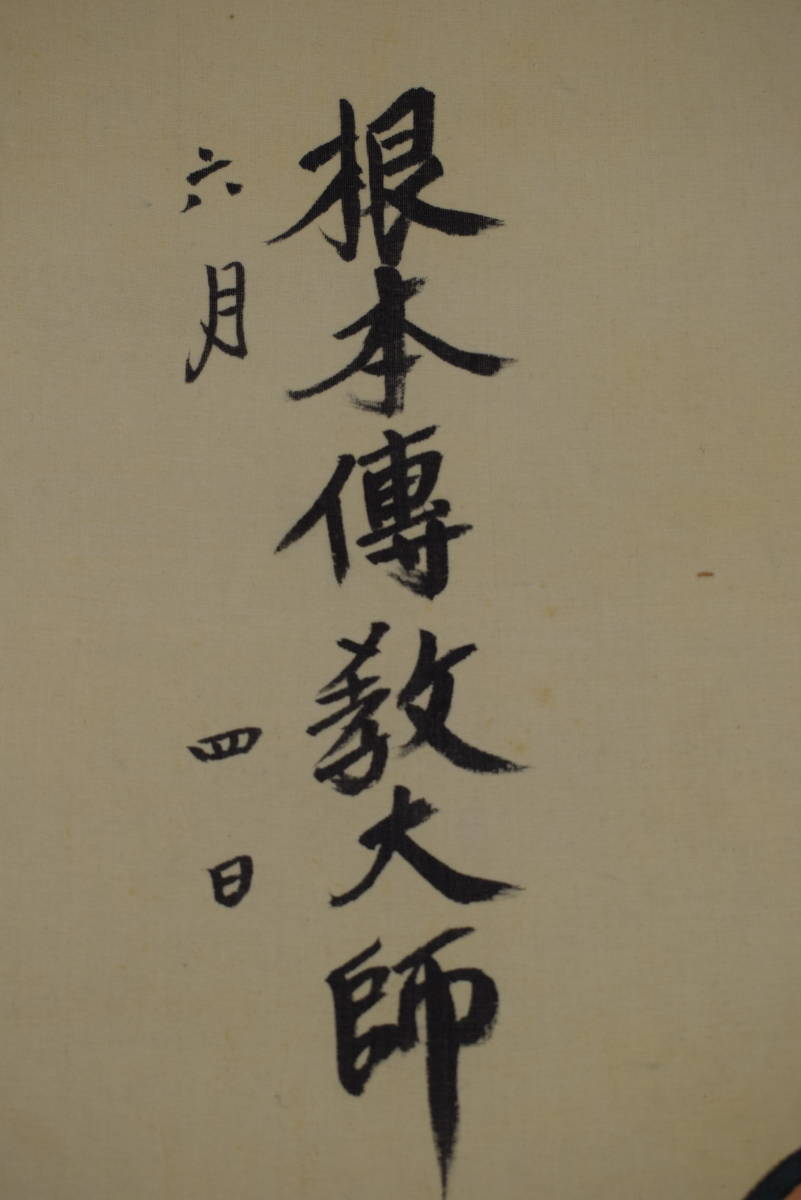 根本傳教大師
六月四日